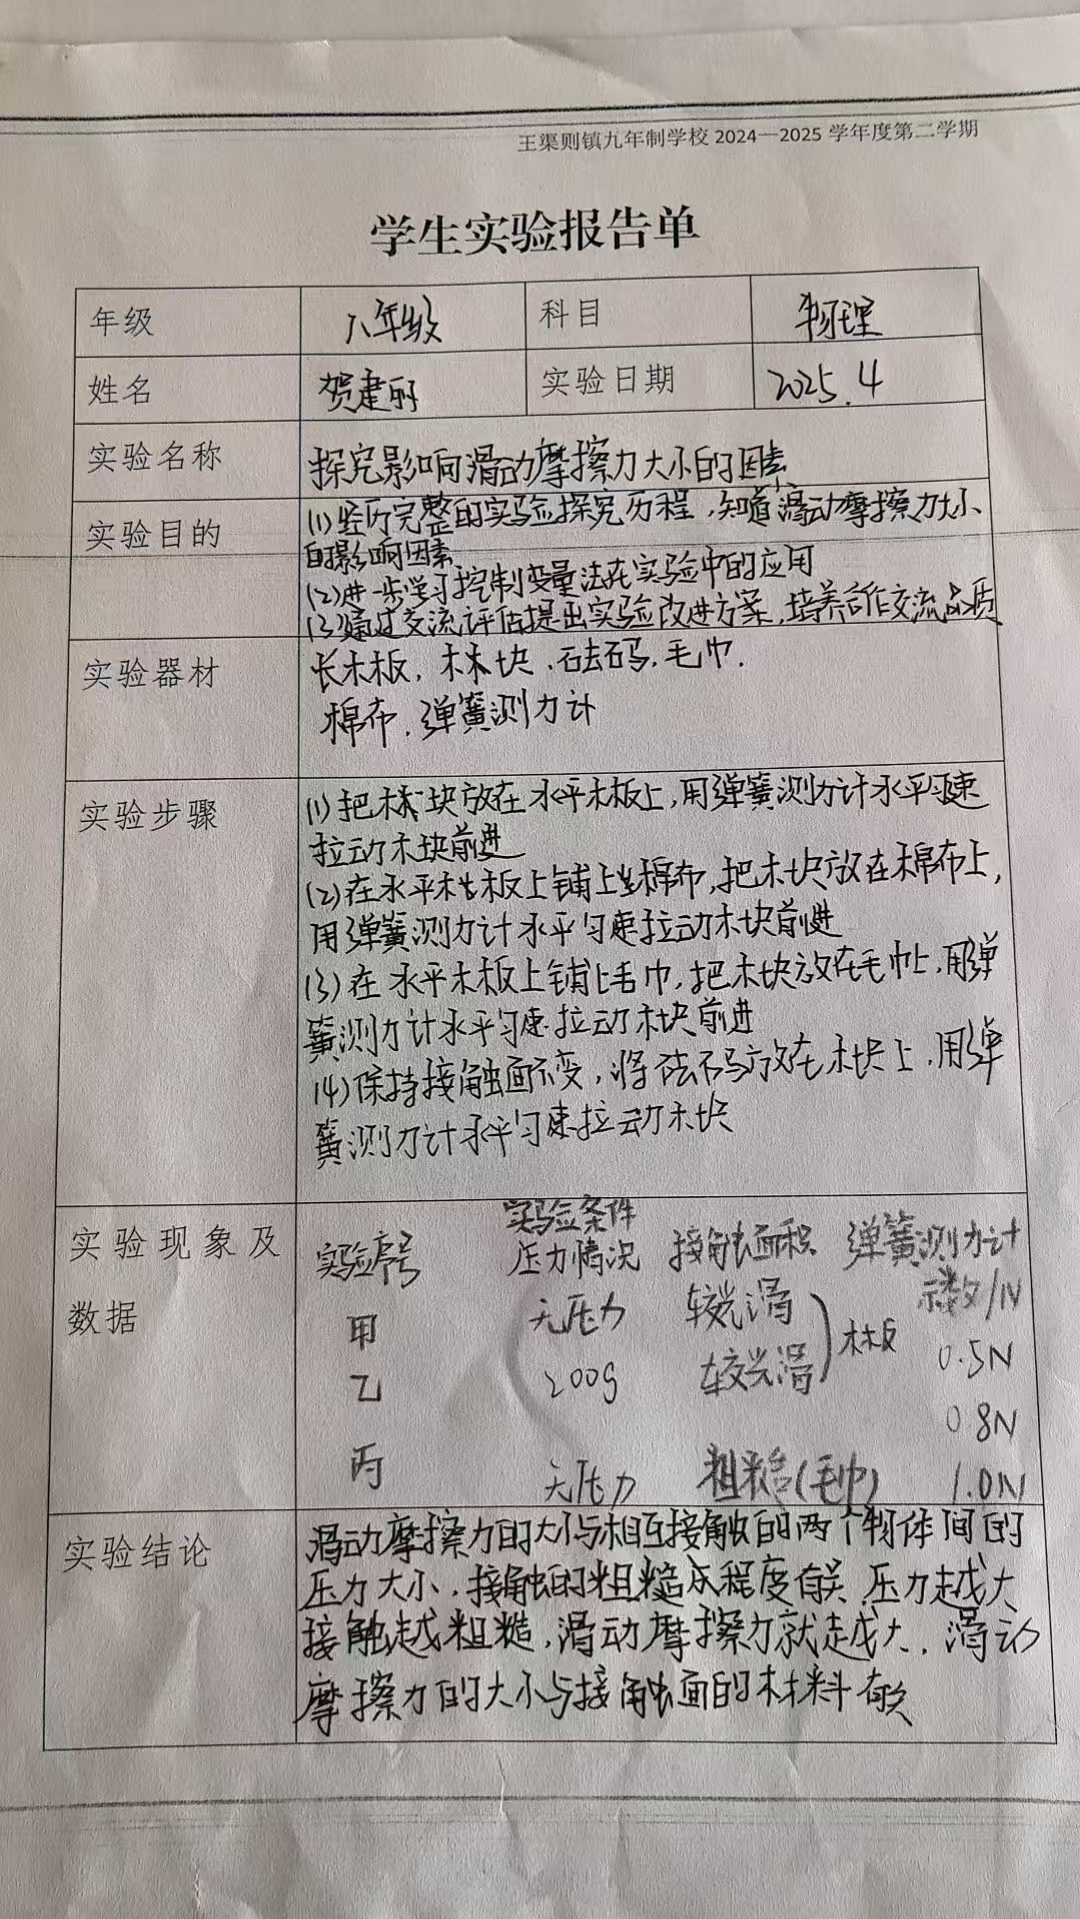 王渠则镇九年制学校 2024—2025 学年度第二学期
学生实验报告单
年级 八年级 科目 物理
姓名 贺建丽 实验日期 2025.4
实验名称 探究影响滑动摩擦力大小的因素
实验目的 (1)经历完整的实验探究历程,知道滑动摩擦力大小
的影响因素
(2)进一步学习控制变量法在实验中的应用
(3)通过交流评估提出实验改进方案,培养合作交流品质
实验器材 长木板,木块,砝码,毛巾,
棉布,弹簧测力计
实验步骤 (1)把木块放在水平木板上,用弹簧测力计水平匀速
拉动木块前进
(2)在水平木板上铺上棉布,把木块放在棉布上,
用弹簧测力计水平匀速拉动木块前进
(3)在水平木板上铺上毛巾,把木块放在毛巾上,用弹
簧测力计水平匀速拉动木块前进
(4)保持接触面不变,将砝码放在木块上,用弹
簧测力计水平匀速拉动木块
实验现象及
数据
实验条件
实验序号 压力情况 接触面积 弹簧测力计
示数/N
甲 无压力 较光滑 木板 0.5N
乙 200g 较光滑 0.8N
丙 无压力 粗糙(毛巾) 1.0N
实验结论 滑动摩擦力的大小与相互接触的两个物体间的
压力大小,接触的粗糙程度有关,压力越大
接触越粗糙,滑动摩擦力就越大,滑动
摩擦力的大小与接触面的材料有关